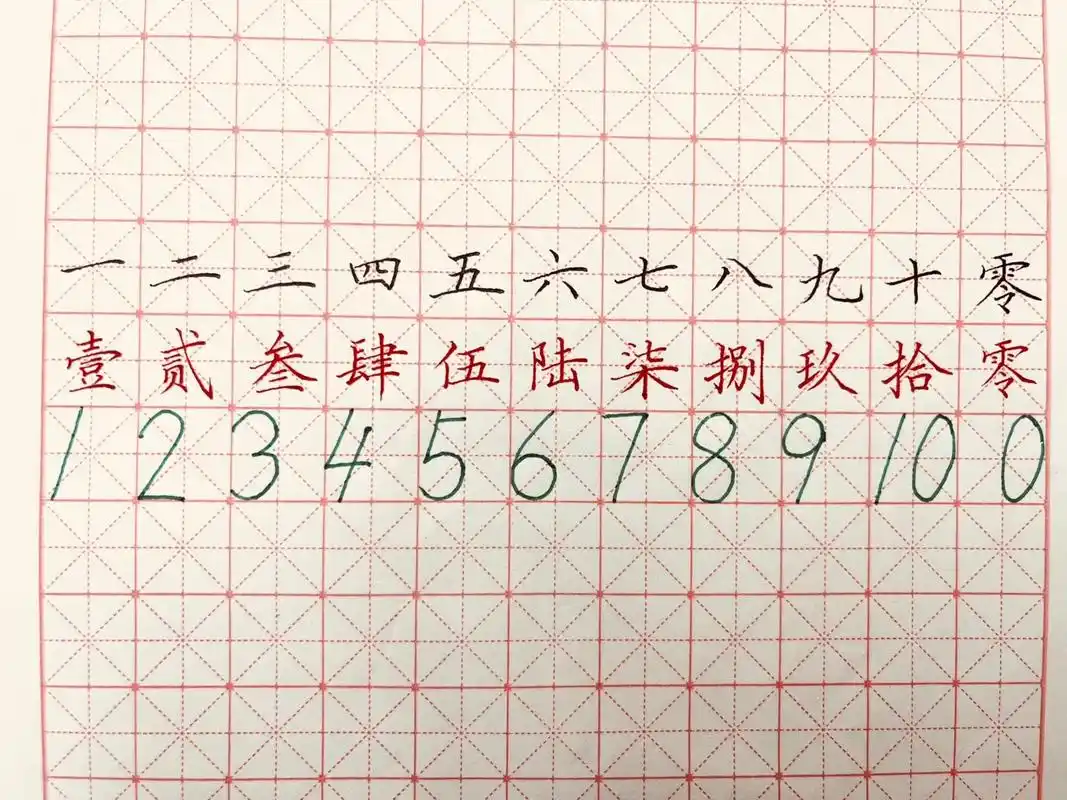 一 二 三 四 五 六 七 八 九 十 零
壹 贰 叁 肆 伍 陆 柒 捌 玖 拾 零
1 2 3 4 5 6 7 8 9 10 0